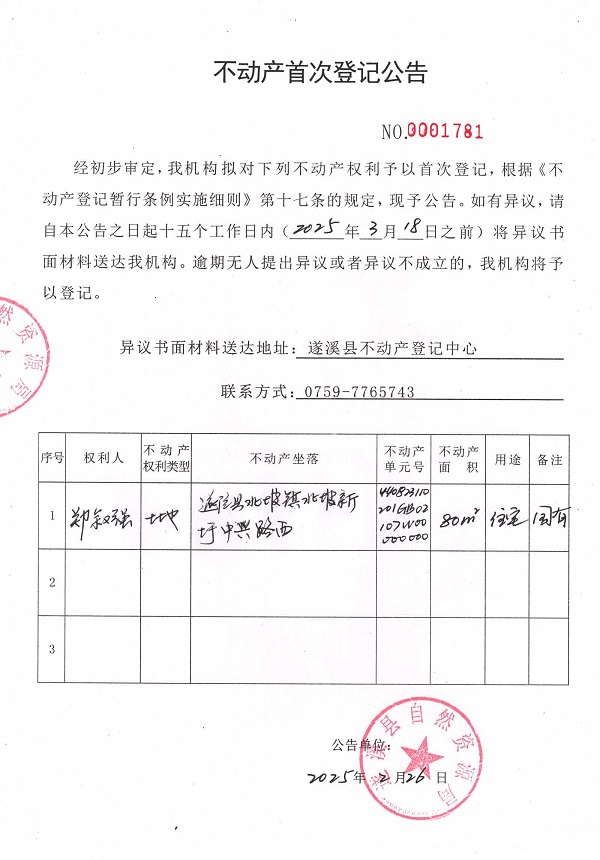 不动产首次登记公告
NO.0001781
经初步审定，我机构拟对下列不动产权利予以首次登记，根据《不
动产登记暂行条例实施细则》第十七条的规定，现予公告。如有异议，请
自本公告之日起十五个工作日内（2025年3月18日之前）将异议书
面材料送达我机构。逾期无人提出异议或者异议不成立的，我机构将予
以登记。
然资源局
异议书面材料送达地址：遂溪县不动产登记中心
联系方式：0759-7765743
序号 权利人 不动产权利类型 不动产坐落 不动产单元号 不动产面积 用途 备注
1 郑叙强 土地 遂溪县北坡镇北坡新圩中兴路西 440823110201GB02107W00000000 80m² 住宅 国有
2
3
公告单位：
遂溪县自然资源局
2025年2月26日